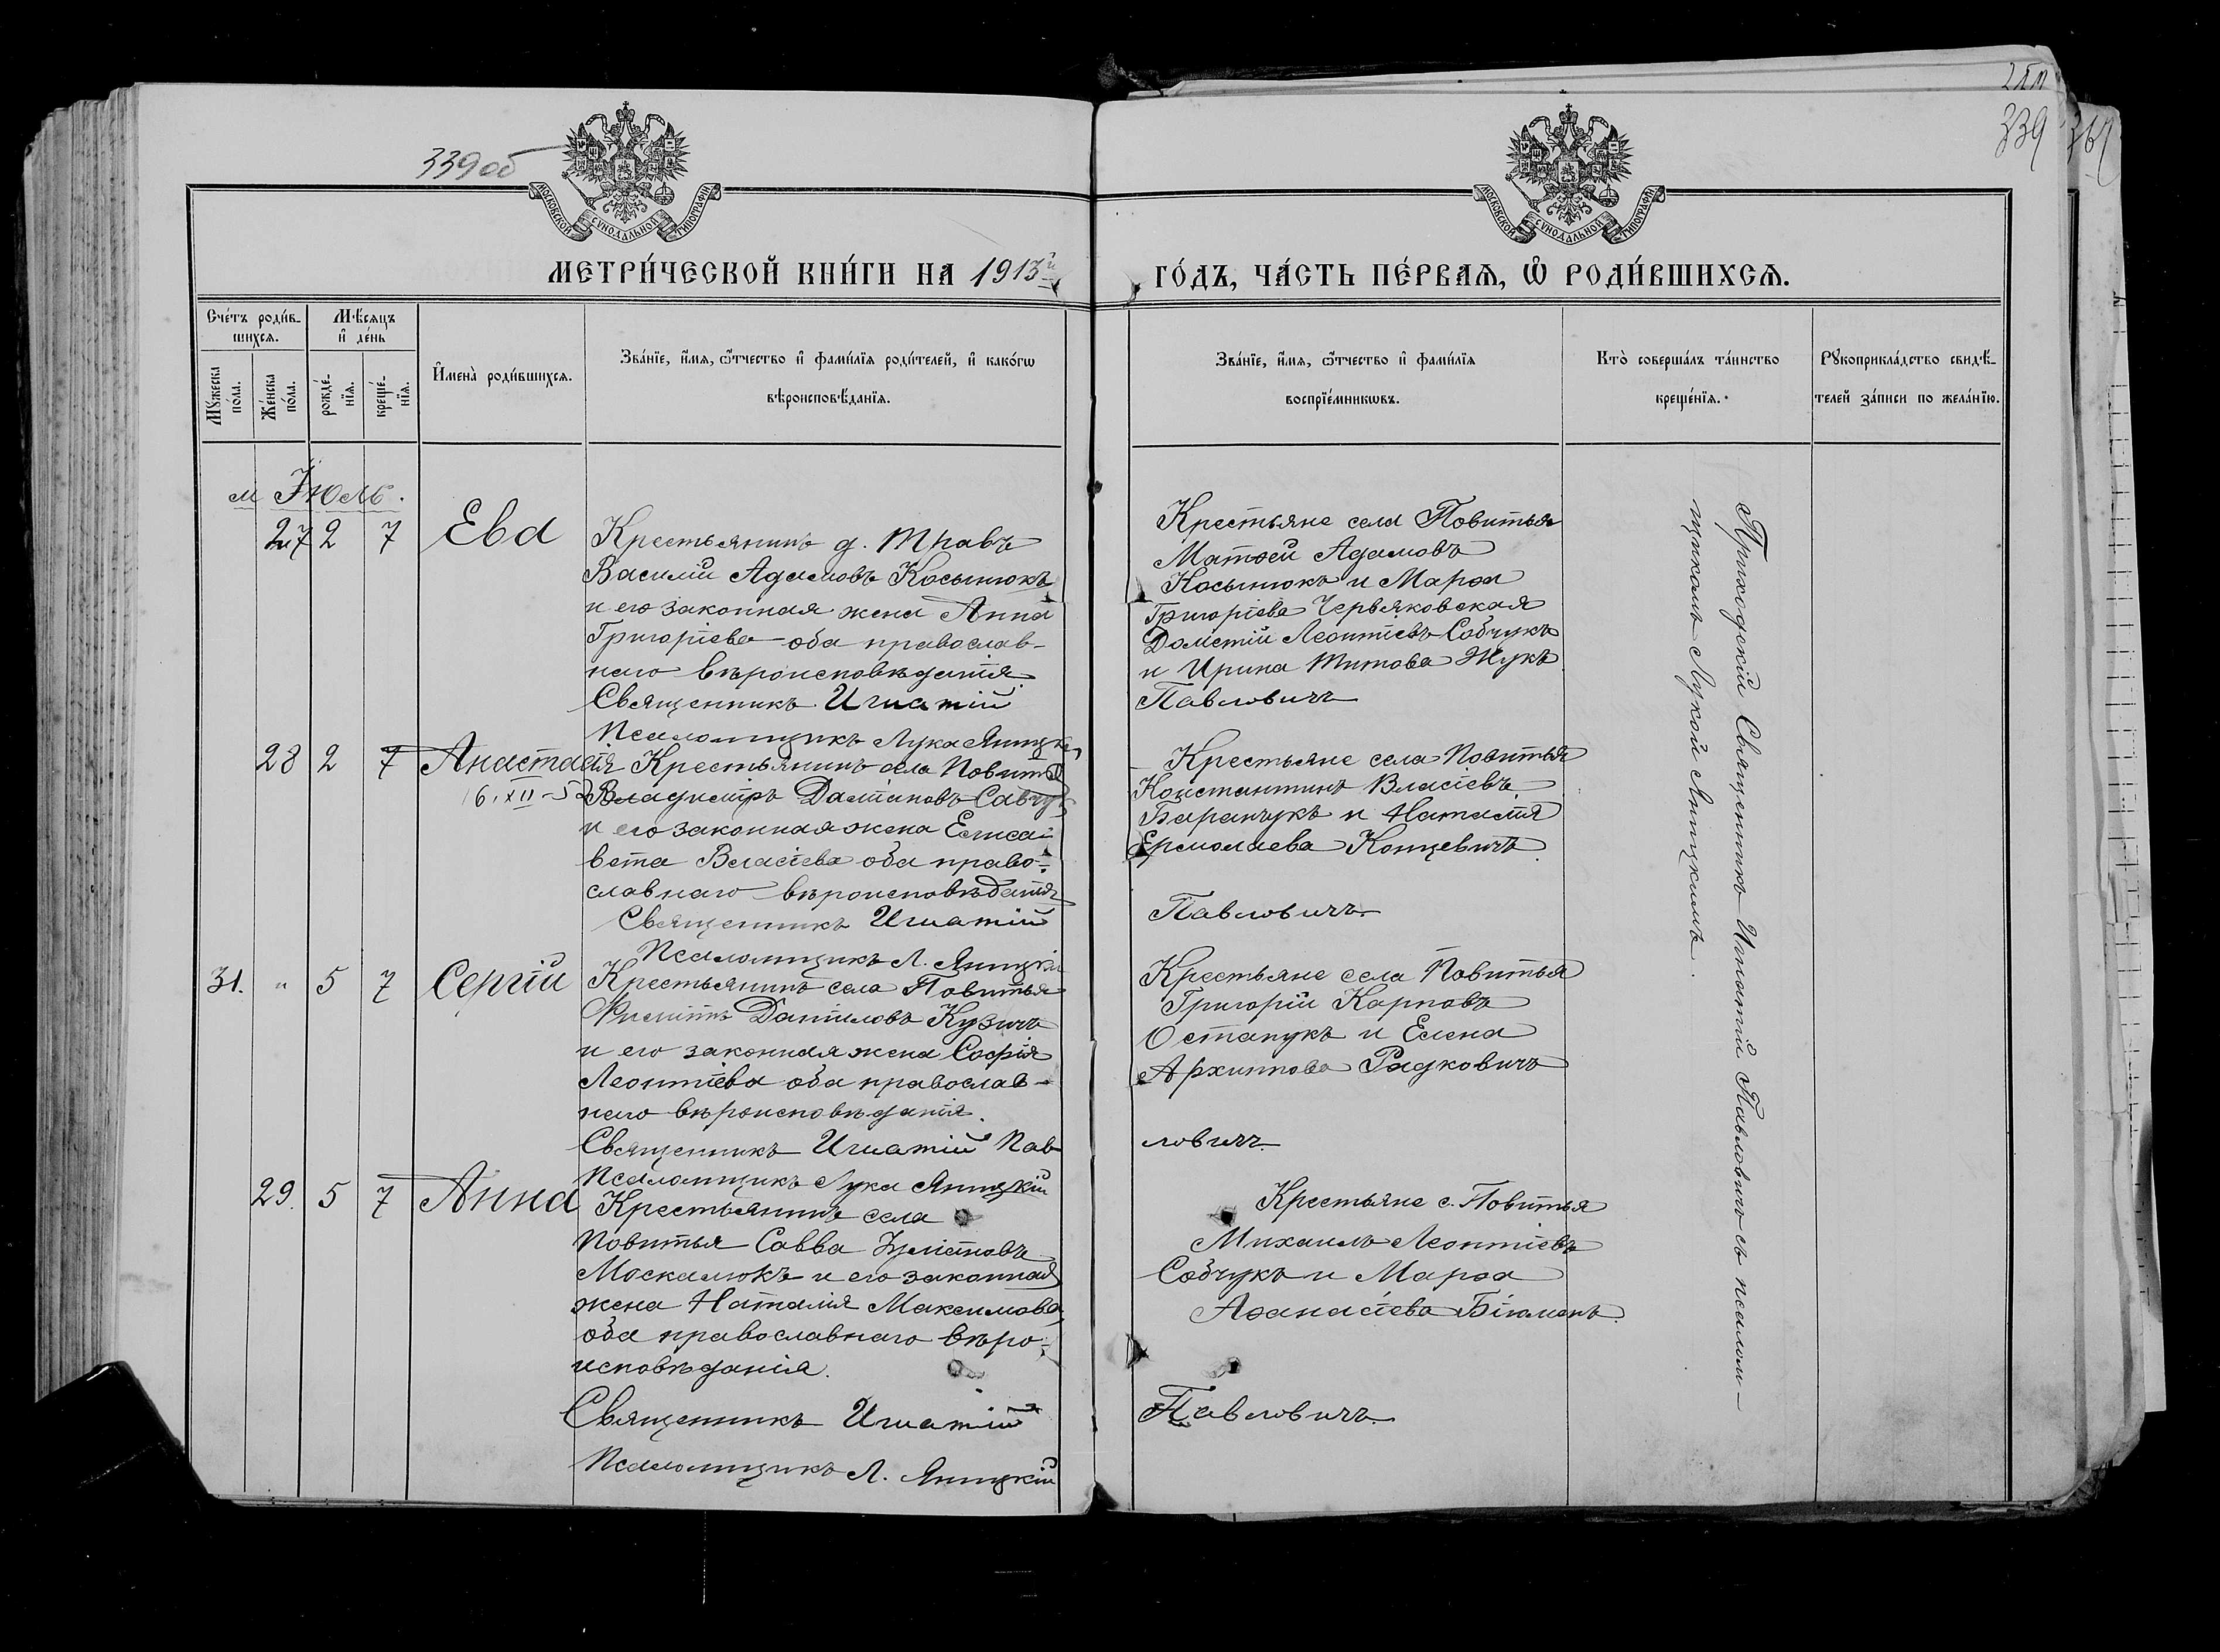 339 об
339
МОСКОВСКОЙ СѴНОДАЛЬНОЙ ТИПОГРАФІИ
МОСКОВСКОЙ СѴНОДАЛЬНОЙ ТИПОГРАФІИ
МЕТРИ́ЧЕСКОЙ КНИ́ГИ НА 1913й ГО́ДЪ, ЧА́СТЬ ПЕ́РВАѦ, Ѽ РОДИ́ВШИХСѦ.
Сче́тъ роди́в-
шихсѧ.
Мꙋ́жеска по́ла.
Же́нска по́ла.
Мѣ́сѧцъ и҆ де́нь
рожде́-
нїѧ.
креще́-
нїѧ.
И҆мена̀ роди́вшихсѧ.
Зва́нїе, и҆́мѧ, ѻ҆́тчество и҆ фами́лїѧ роди́телей, и҆ како́гѡ
вѣроисповѣ́данїѧ.
Зва́нїе, и҆́мѧ, ѻ҆́тчество и҆ фами́лїѧ
воспрїе́мникѡвъ.
Кто̀ соверша́лъ та́инство
креще́нїѧ.
Рꙋкоприкла́дство свидѣ́-
телей за́писи по жела́нїю.
м Июль.
27 2 7 Ева
Крестьянинъ д. Травъ
Василій Адамовъ Косынюкъ
и его законная жена Анна
Григоріева оба православ-
наго вѣроисповѣданія.
Священникъ Игнатій
Псаломщикъ Лука Яницкій
Крестьяне села Повитья
Матѳей Адамовъ
Косынюкъ и Марѳа
Григоріева Червяковская
Дометій Леонтіевъ Собчукъ
и Ирина Титова Жукъ
Павловичъ
28 2 7 Анастасія
16.XII-52
Крестьянинъ села Повитья
Владиміръ Даміановъ
и его законная жена Елиса-
вета Власіева оба право-
славнаго вѣроисповѣданія
Священникъ Игнатій
Псаломщикъ Л. Яницкій
Крестьяне села Повитья
Константинъ Власіевъ
Баранчукъ и Наталія
Ермолаева Концевичъ
Павловичъ
31. " 5 7 Сергій
Крестьянинъ села Повитья
Филиппъ Даниловъ Кузичъ
и его законная жена Софія
Леонтіева оба православ-
наго вѣроисповѣданія.
Священникъ Игнатій Пав
Псаломщикъ Лука Яницкій
Крестьяне села Повитья
Григорій Карповъ
Остапукъ и Елена
Архиппова Радковичъ
ловичъ
29. 5 7 Анна
Крестьянинъ села
Повитья Савва
Москалюкъ и его законная
жена Наталія Максимова
оба православнаго вѣро-
исповѣданія.
Священникъ Игнатій
Псаломщикъ Л. Яницкій
Крестьяне с. Повитья
Михаилъ Леонтіевъ
Собчукъ и Марѳа
Аѳанасіева
Павловичъ
Приходскій Священникъ Игнатій Павловичъ съ псалом-
щикомъ Лукой Яницкимъ.